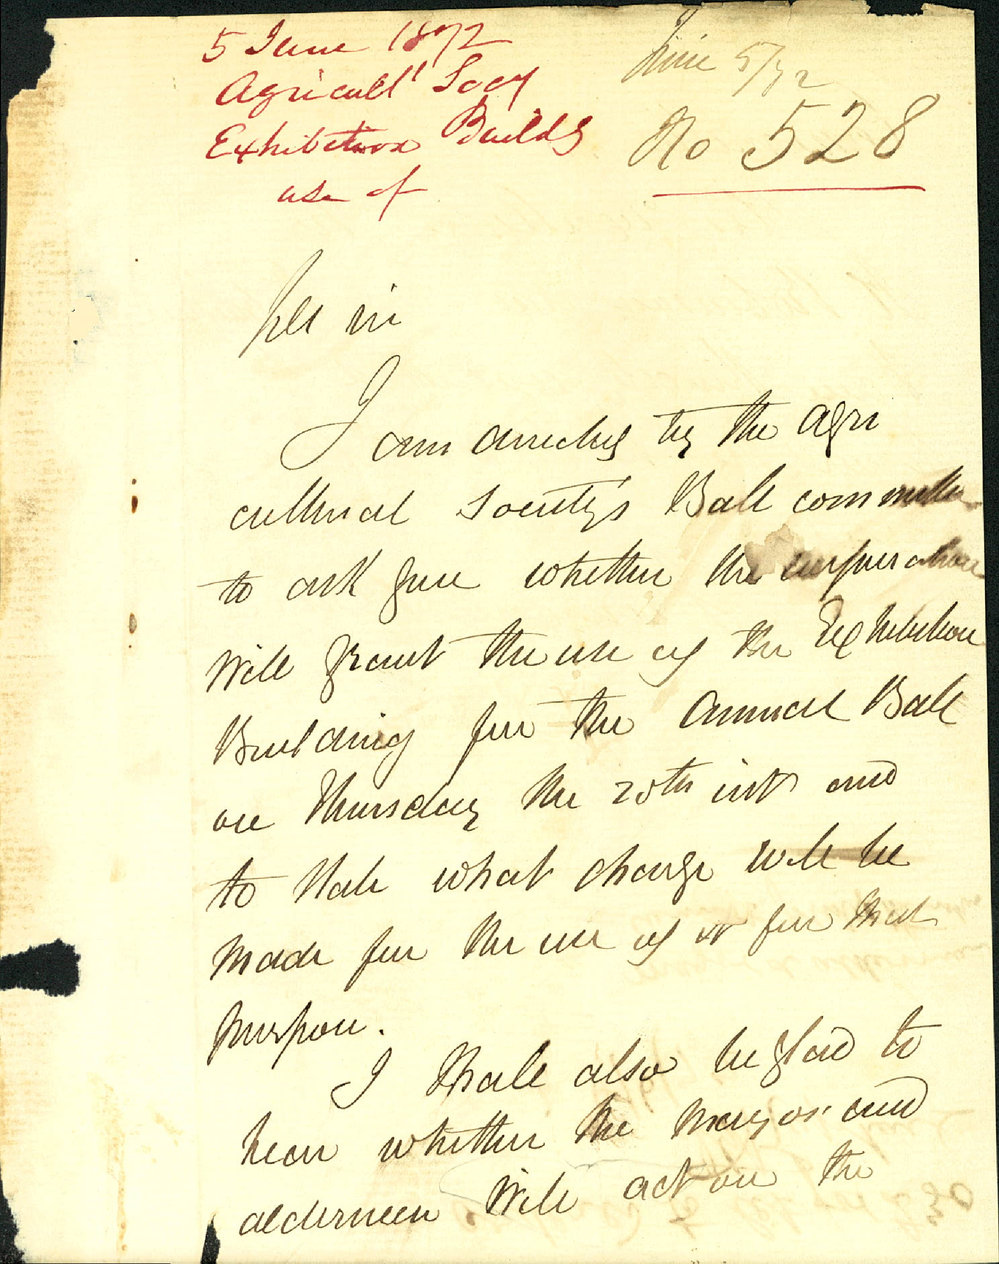 5 June 1872
Agricultl Socy
Exhibition Buildg
use of
June 5/72
No 528
Dr Sir
I am directed by the Agri
cultural Society's Ball committee
to ask you whether the corporation
will grant the use of the Exhibition
Building for the Annual Ball
on Thursday the 20th inst and
to state what charge will be
made for the use of it for that
purpose.
I shall also be glad to
hear whether the Mayor and
aldermen will act on the